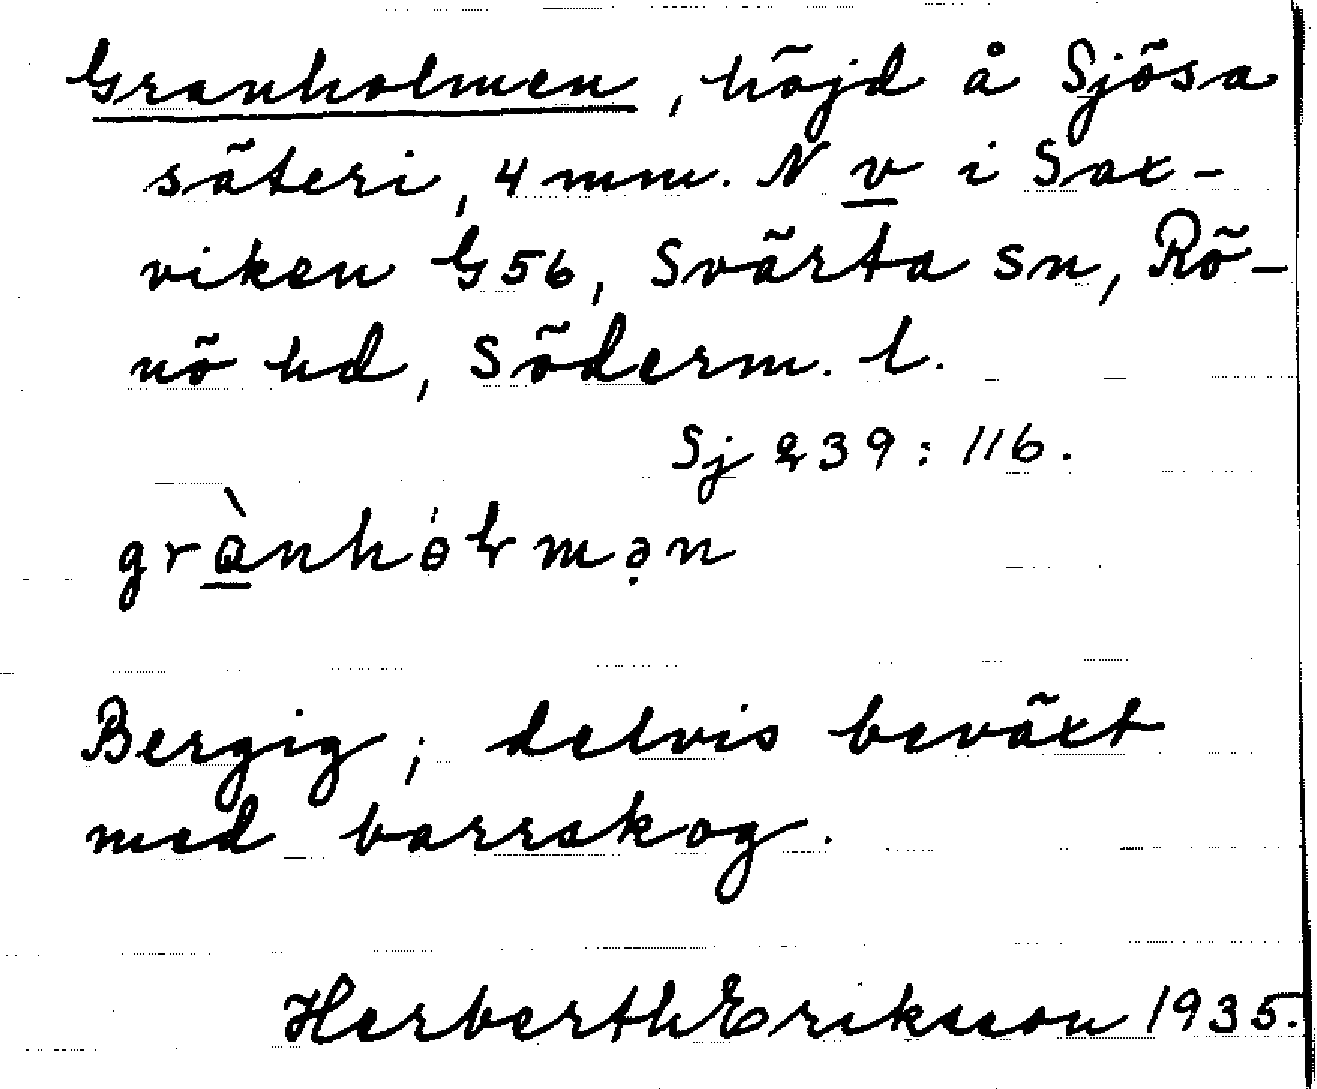 Granholmen, höjd å Sjösa
säteri, 4 mm. N v i Sax-
viken G56, Svärta sn, Rö-
nö hd, Söderm. l.
239:116.
Bergig; delvis beväxt
med barrskog.
Herberth Eriksson 1935.